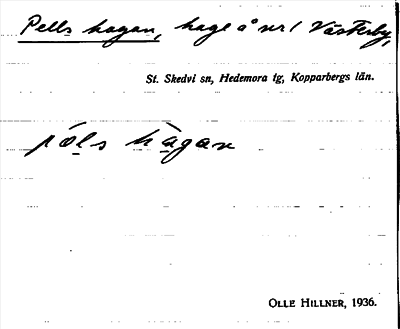 Pells hagan, hage å nr 1 Västerby,
St. Skedvi sn, Hedemora tg, Kopparbergs län.
OLLE HILLNER, 1936.